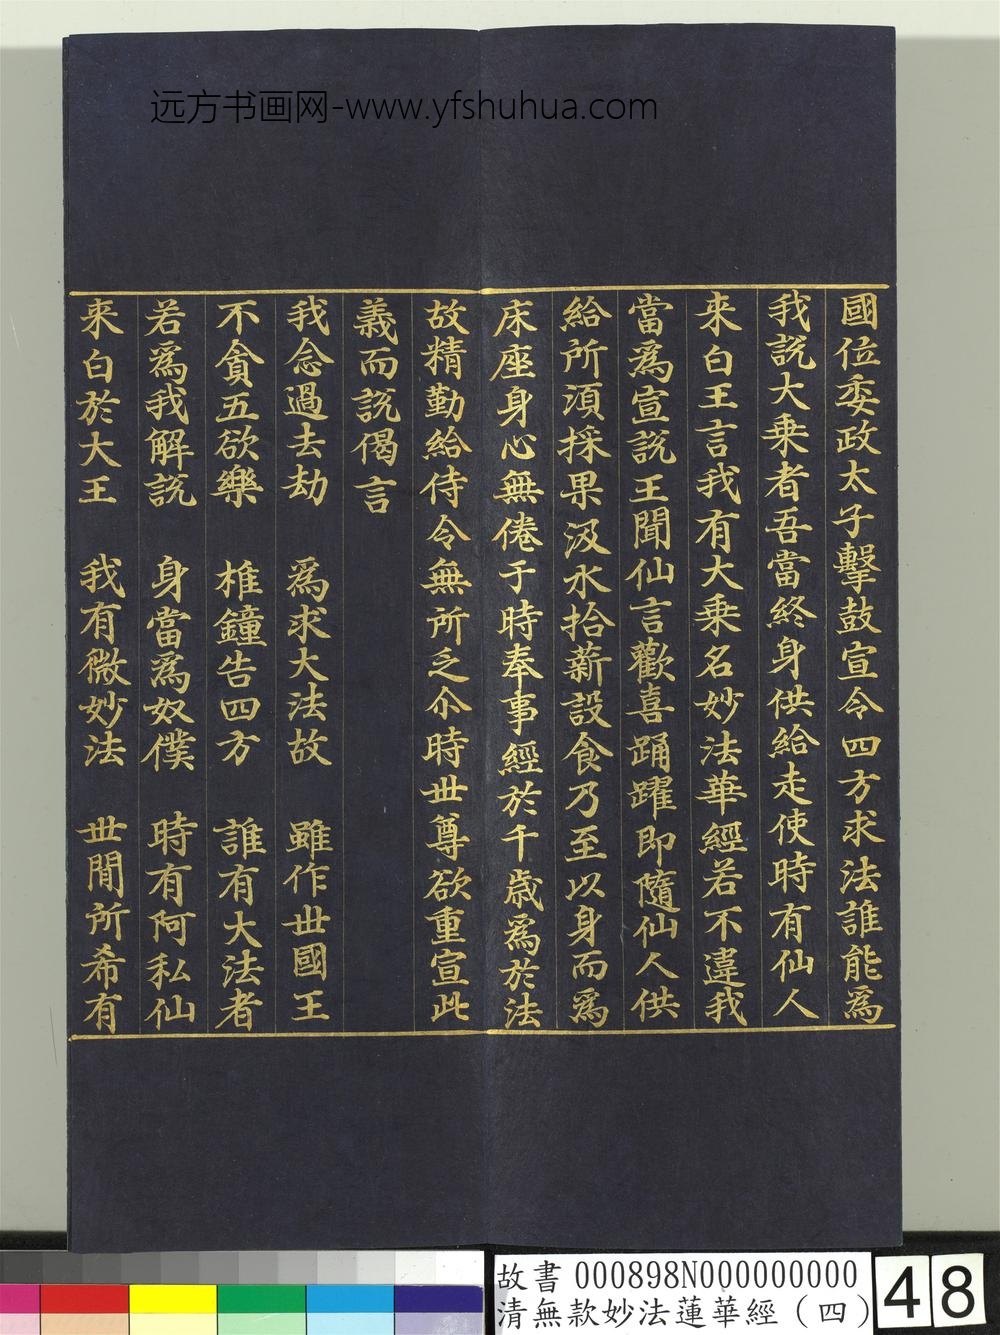 远方书画网-www.yfshuhua.com
國位委政太子擊鼓宣令四方求法誰能爲
我說大乗者吾當終身供給走使時有仙人
来白王言我有大乗名妙法華經若不違我
當爲宣說王聞仙言歡喜踊躍即隨仙人供
給所須採果汲水拾薪設食乃至以身而爲
床座身心無倦于時奉事經於千歲爲於法
故精勤給侍令無所乏尒時世尊欲重宣此
義而說偈言
我念過去劫　爲求大法故　雖作世國王
不貪五欲樂　椎鐘告四方　誰有大法者
若爲我解說　身當爲奴僕　時有阿私仙
来白於大王　我有微妙法　世間所希有
故書 000898N000000000
清無款妙法蓮華經（四）
48